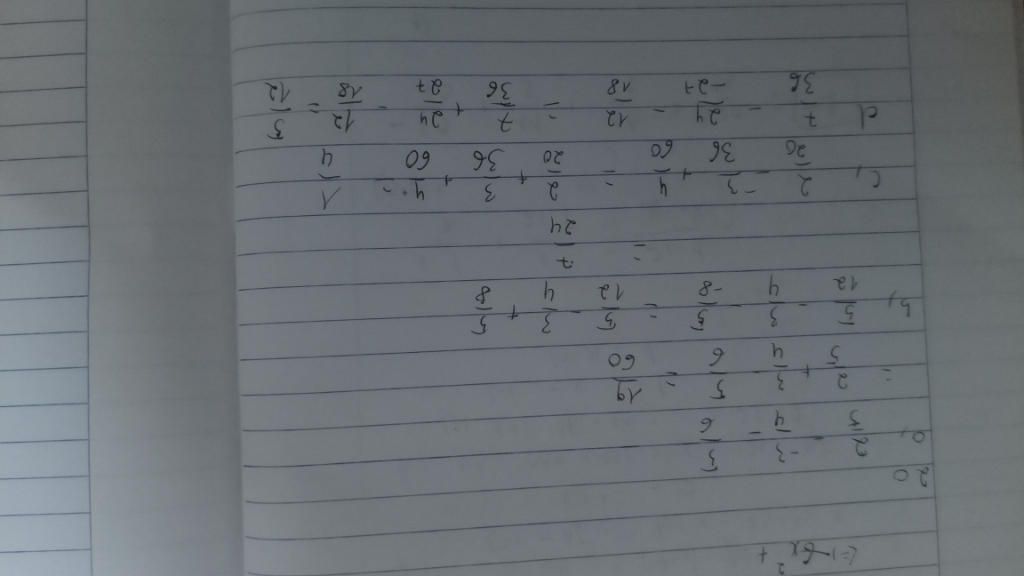 20
a, 2/5 - -3/4 - 5/6
= 2/5 + 3/4 - 5/6 = 19/60
b, 5/12 - 3/4 - 5/-8 = 5/12 - 3/4 + 5/8
= 7/24
c, 2/20 - -3/36 + 4/60 = 2/20 + 3/36 + 4/60 = 1/4
d 7/36 - 24/-27 - 12/18 = 7/36 + 24/27 - 12/18 = 5/12